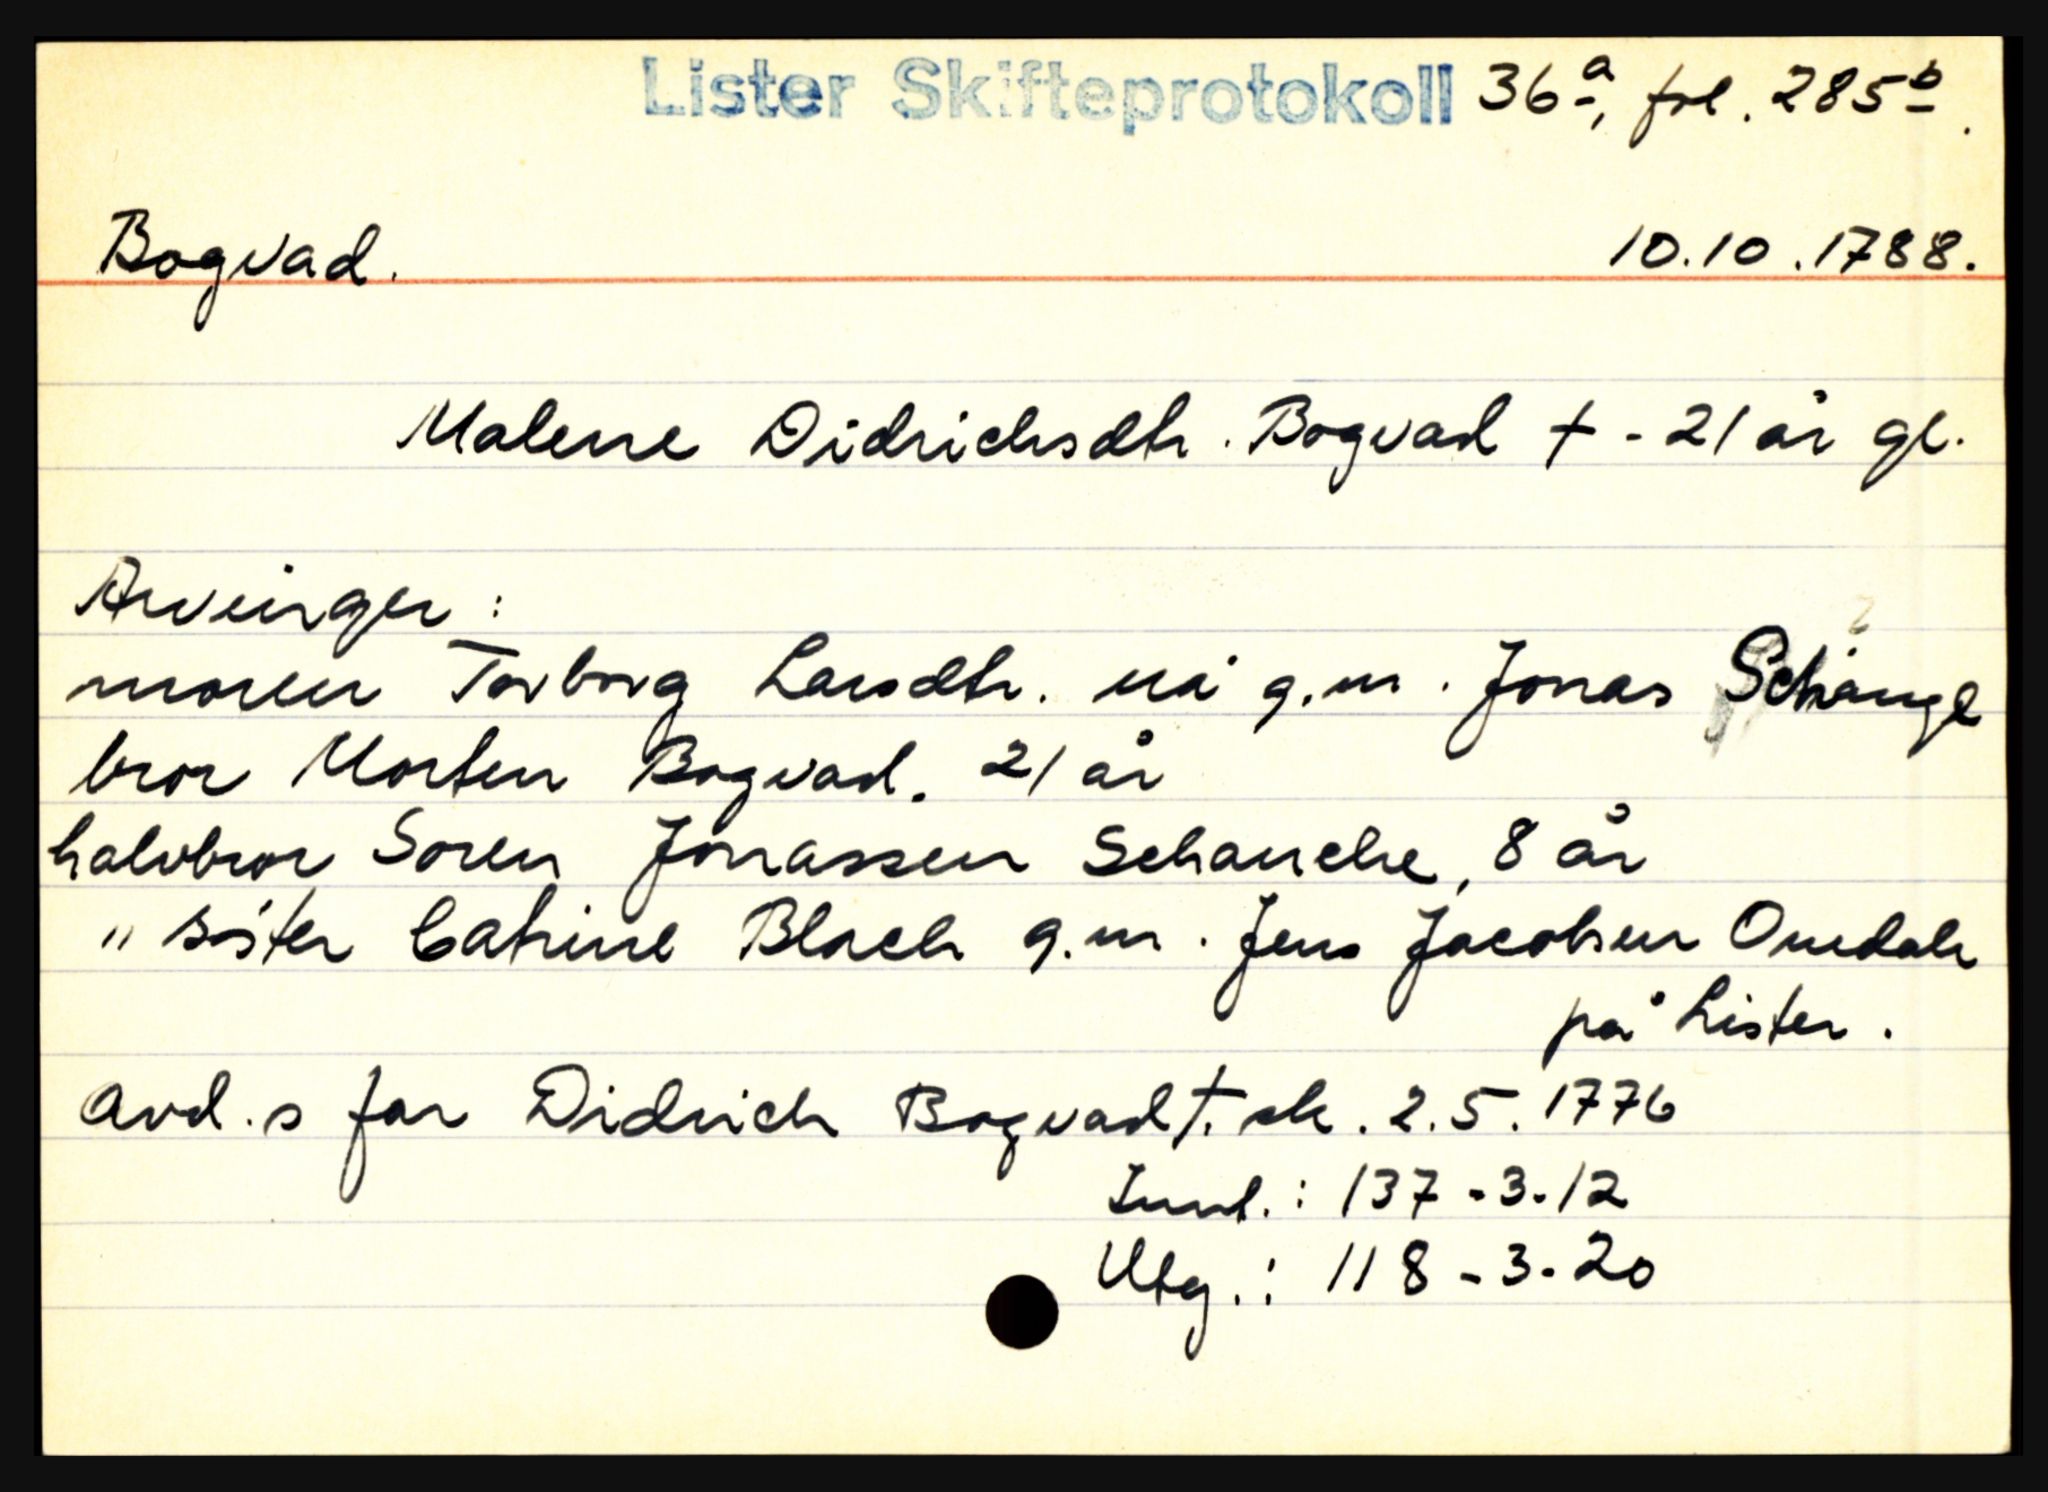 Lister Skifteprotokoll 36a, fol. 285b.
Bogvad. 10.10.1788.
Malene Didrichsdtr. Bogvad † - 21 år gl.
Arvinger:
moren Torborg Larsdtr. nå g.m. Jonas
bror Morten Bogvad. 21 år
halvbror Soren Jonassen Schanche, 8 år
" søster Catrine Bloch g.m. Jens Jacobsen Omdal
på Lister.
Avd.s far Didrich Bogvad †. sk. 2.5.1776
Innt.: 137-3-12
Utg.: 118-3-20